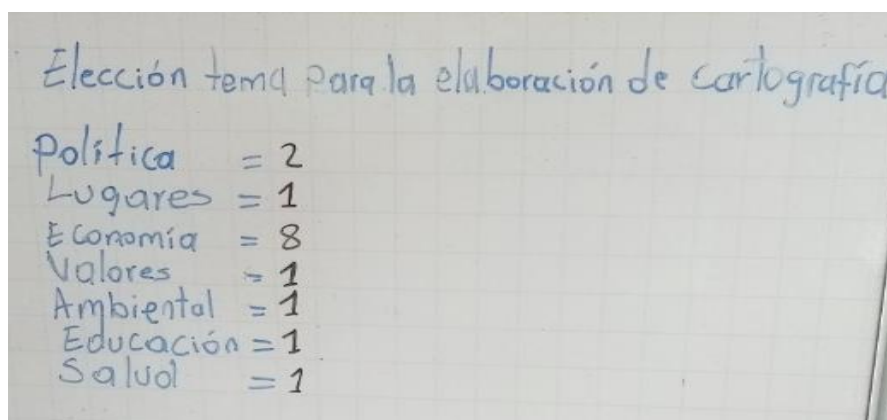 Elección tema para la elaboración de cartografía
Política = 2
Lugares = 1
Economía = 8
Valores = 1
Ambiental = 1
Educación = 1
Salud = 1